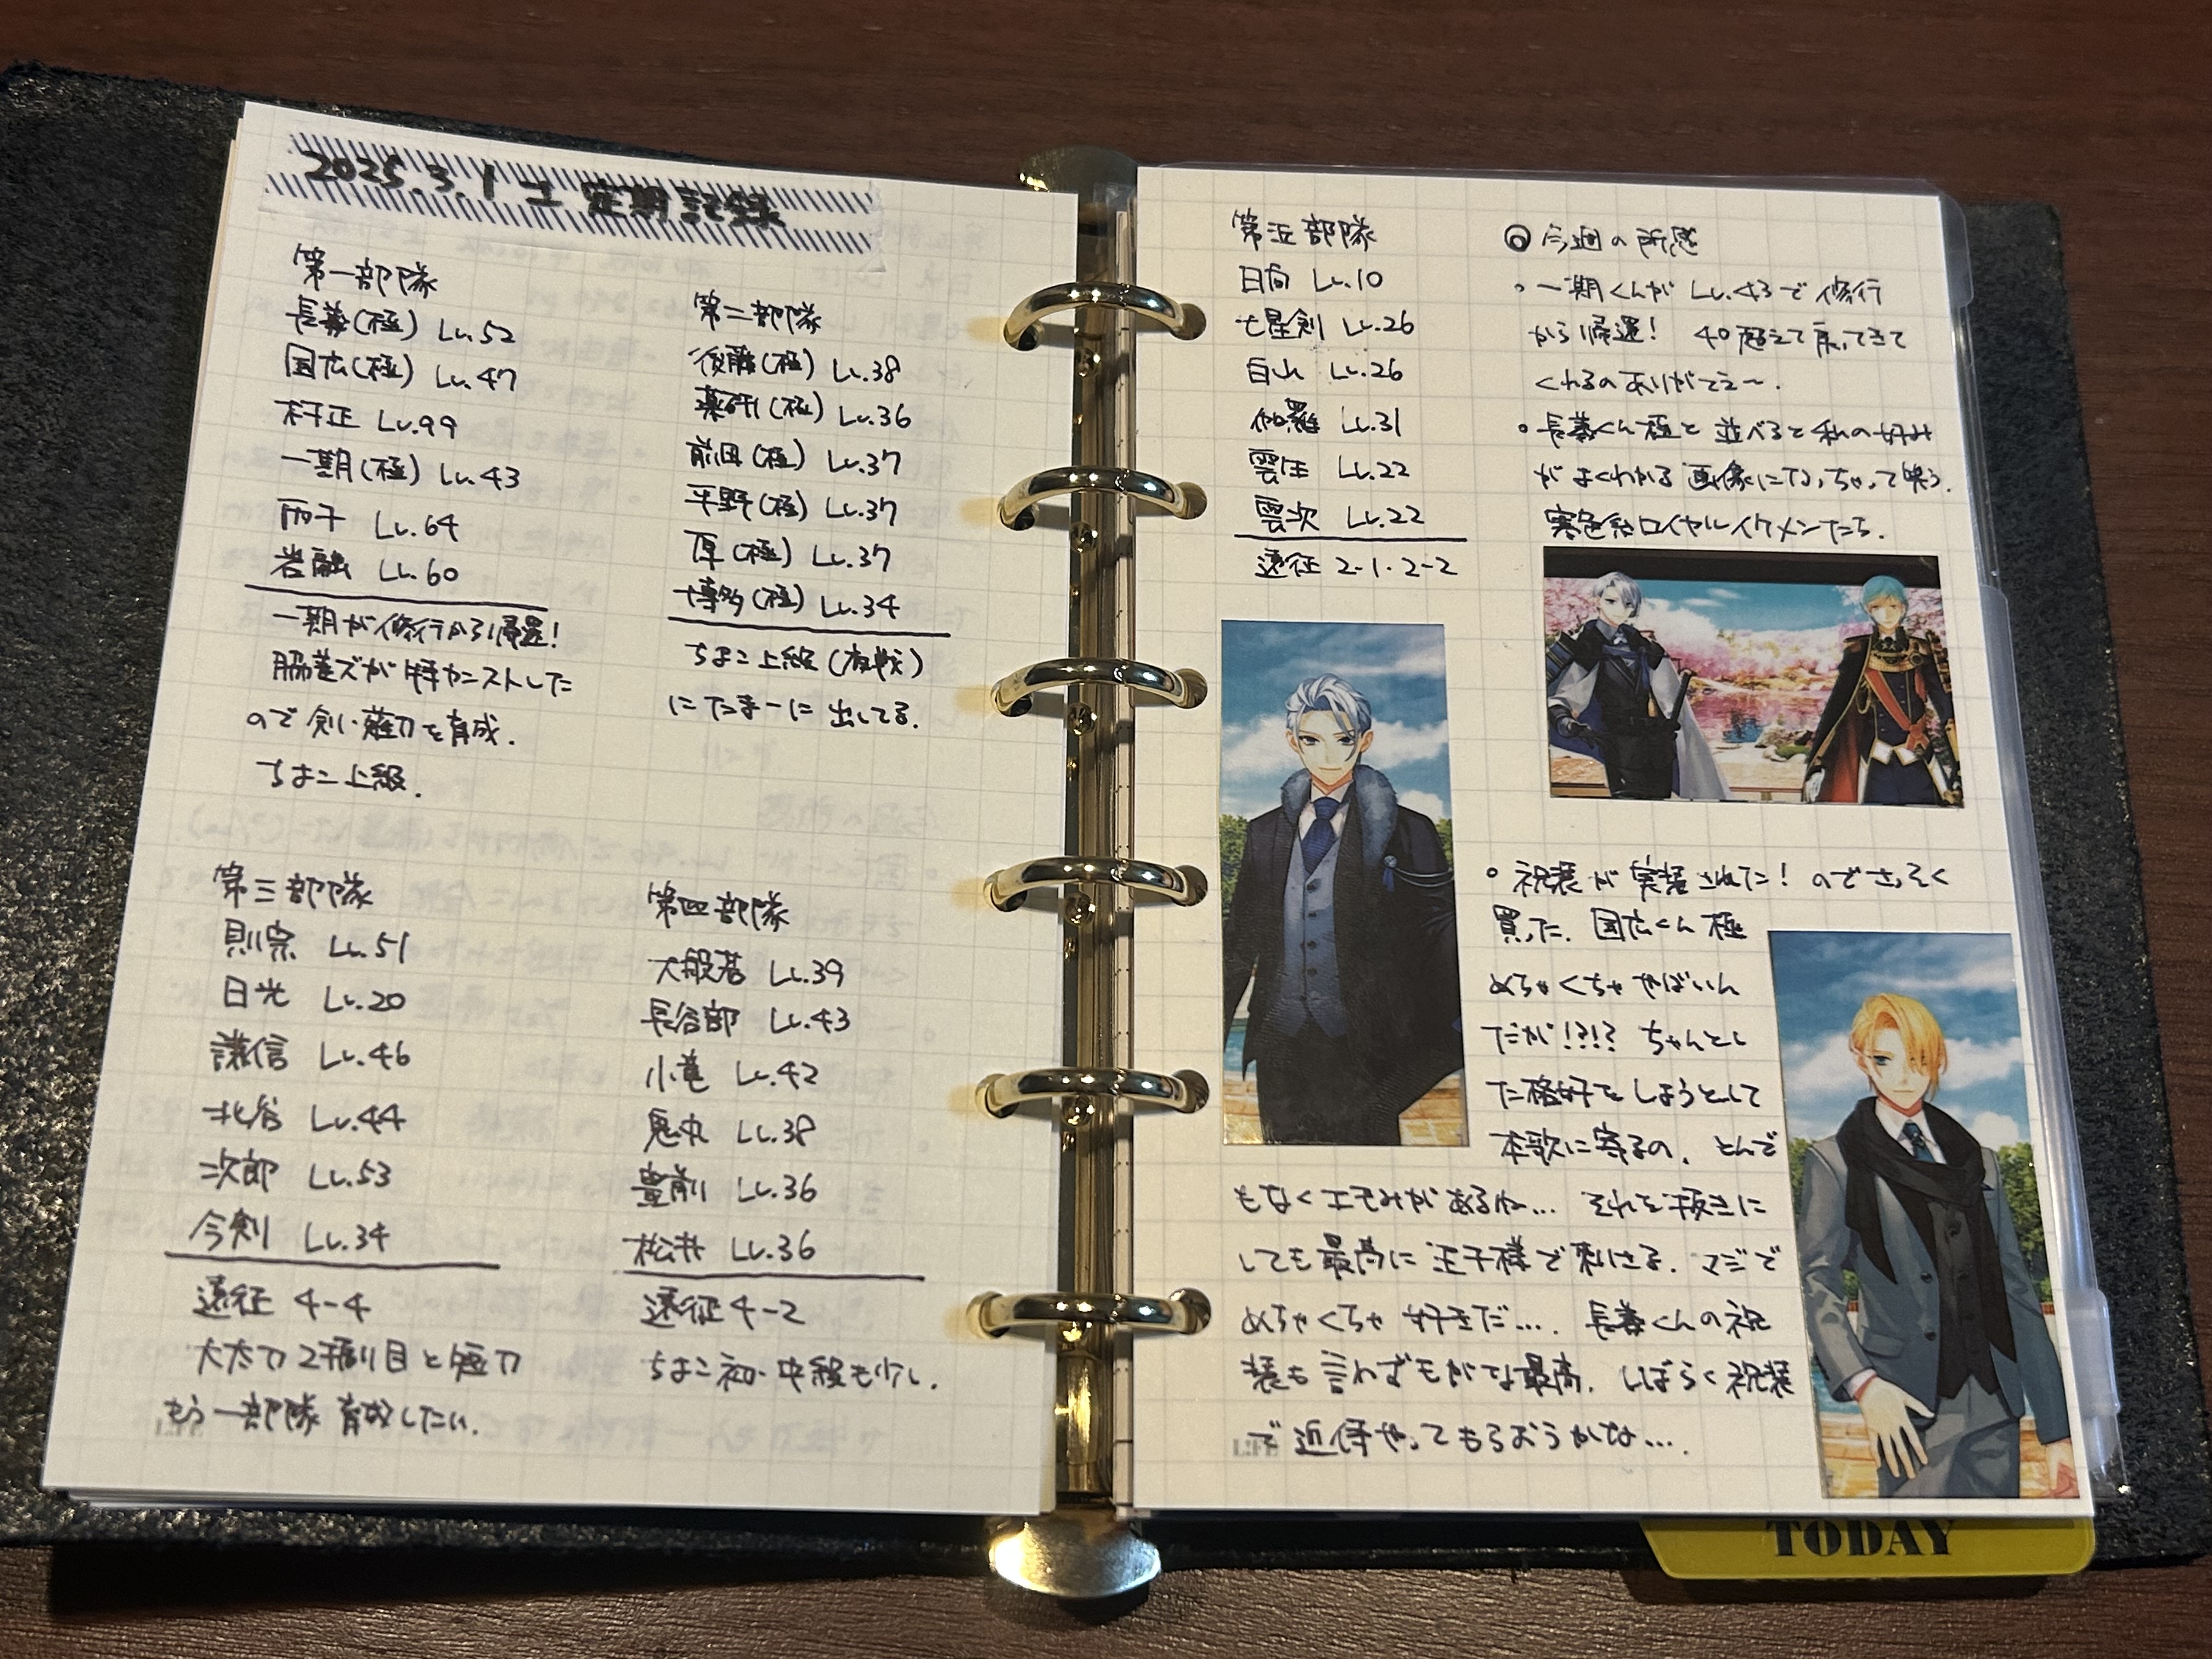 2025.3.1 土 定期記録
第一部隊
長義(極) Lv.52
国広(極) Lv.47
村正 Lv.99
一期(極) Lv.43
丙子 Lv.64
岩融 Lv.60
一期が修行から帰還!
脇差ズが特カンストした
ので剣・薙刀を育成.
ちよこ上級.
第二部隊
後藤(極) Lv.38
薬研(極) Lv.36
前田(極) Lv.37
平野(極) Lv.37
厚(極) Lv.37
博多(極) Lv.34
ちよこ上級(夜戦)
にたまーに出してる.
第三部隊
則宗 Lv.51
日光 Lv.20
謙信 Lv.46
北谷 Lv.44
次郎 Lv.53
今剣 Lv.34
遠征 4-4
大太刀2振り目と短刀
もう一部隊育成したい.
第四部隊
大般若 Lv.39
長谷部 Lv.43
小竜 Lv.42
鬼丸 Lv.38
豊前 Lv.36
松井 Lv.36
遠征 4-2
ちよこ初・中級も少し.
第五部隊
日向 Lv.10
七星剣 Lv.26
白山 Lv.26
伽羅 Lv.31
雲生 Lv.22
雲次 Lv.22
遠征 2-1・2-2
◎今週の所感
・一期くんが Lv.43で修行
から帰還! 40超えて戻ってきて
くれるのありがてえ〜.
・長義くん極と並べると私の好み
がよくわかる画像になっちゃって笑う.
寒色系ロイヤルイケメンたち.
・祝装が実装された!のでさっそく
買った. 国広くん極
めちゃくちゃやばいん
だが!?!? ちゃんとし
た格好をしようとして
本歌に寄るの、とんで
もなくエモみがあるね… それを抜きに
しても最高に王子様で刺さる. マジで
めちゃくちゃ好きだ…. 長義くんの祝
装も言わずもがな最高. しばらく祝装
で近侍やってもらおうかな….
LIFE
LIFE
TODAY